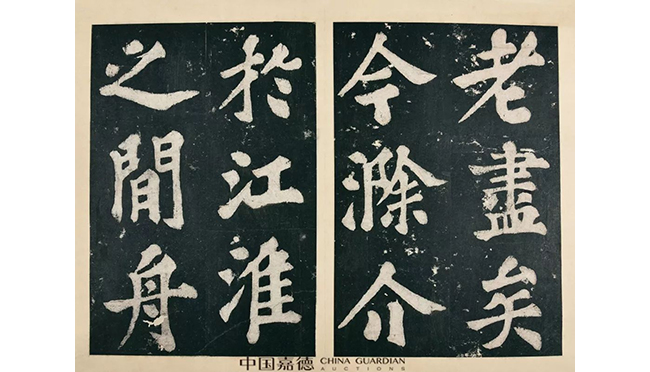 老盡矣
今滁介
於江淮
之間舟
中国嘉德 CHINA GUARDIAN
AUCTIONS